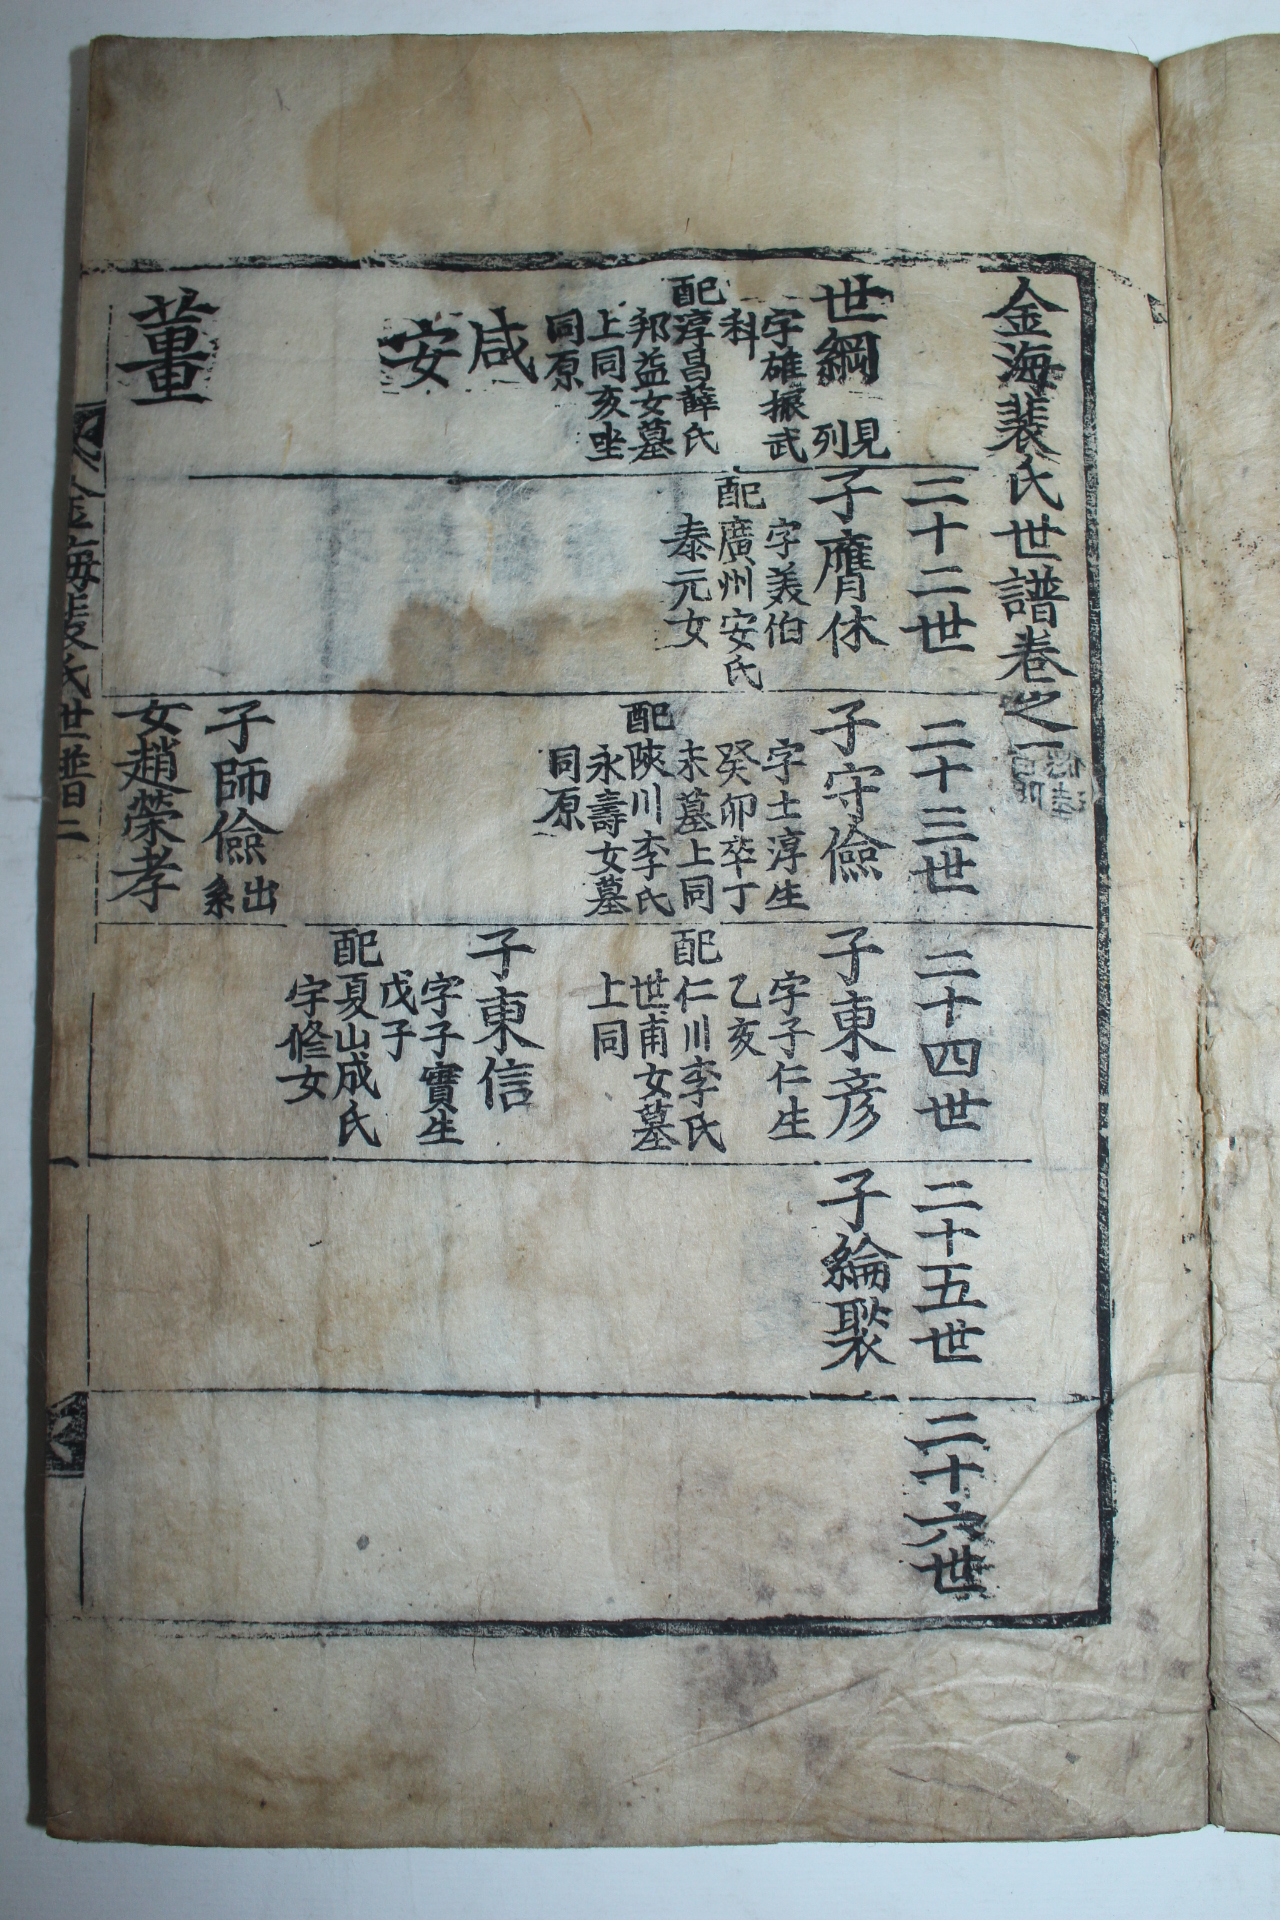 金海裴氏世譜卷之一
二十二世
二十三世
二十四世
二十五世
二十六世
世綱
見
列
字碓振武
科
配淳昌薛氏
邦益女墓
上同亥坐
同原
咸
安
董
子膺休
字美伯
配廣州安氏
泰元女
子守儉
字士淳生
癸卯卒丁
未墓上同
配陜川李氏
永壽女墓
同原
子師儉
出
系
女趙榮孝
子東彦
字子仁生
乙亥
配仁川李氏
世甫女墓
上同
子東信
字子實生
戊子
配夏山成氏
字修女
子綸褧
金海裴氏世譜二
一